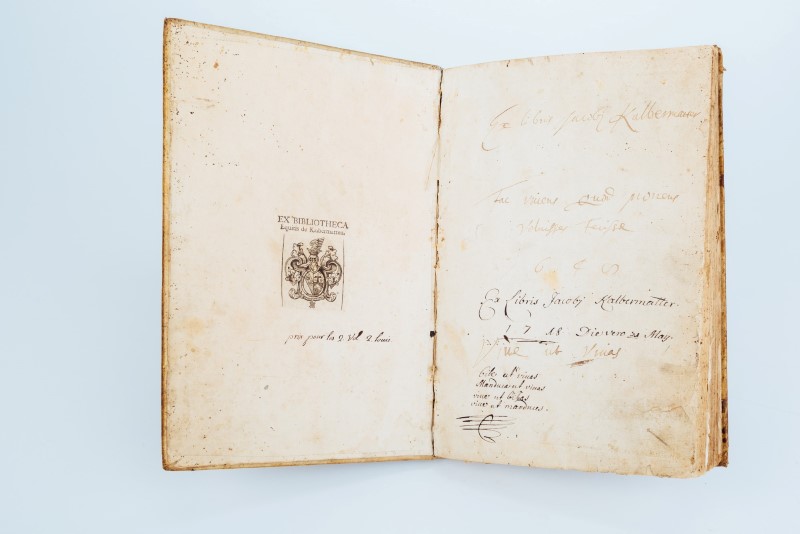 EX BIBLIOTHECA
de Kalbermatten
prix pour les 2 Vol. 2 louis
Ex libris Jacobj Kalbermatter
Fac vivens quod moriens
voluisses
Ex Libris Jacobj Kalbermatter
1718 Die vero May
ut vivas
bibe ut vivas
Manduca ut vivas
vive ut bibas
vive ut manduces